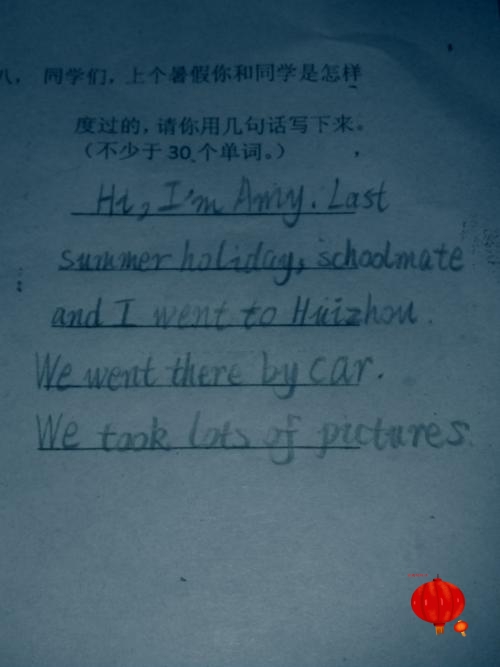 八， 同学们，上个暑假你和同学是怎样
度过的，请你用几句话写下来。
（不少于 30 个单词。）
Hi, I'm Amy. Last
summer holiday, schoolmate
and I went to Huizhou.
We went there by car.
We took lots of pictures.